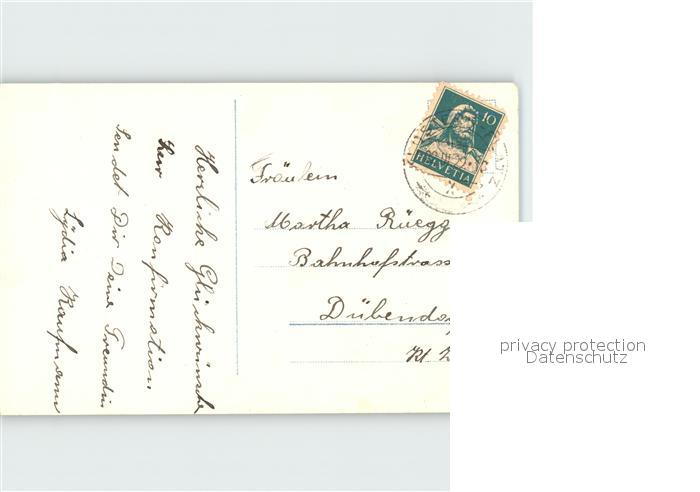 Herzliche Glückwünsche
zur Konfirmation
sendet Dir Deine Freundin
Lydia Kaufmann
10
HELVETIA
Fräulein
Martha Rüegg
Bahnhofstrass
Dübendo
Kt. Z
privacy protection
Datenschutz